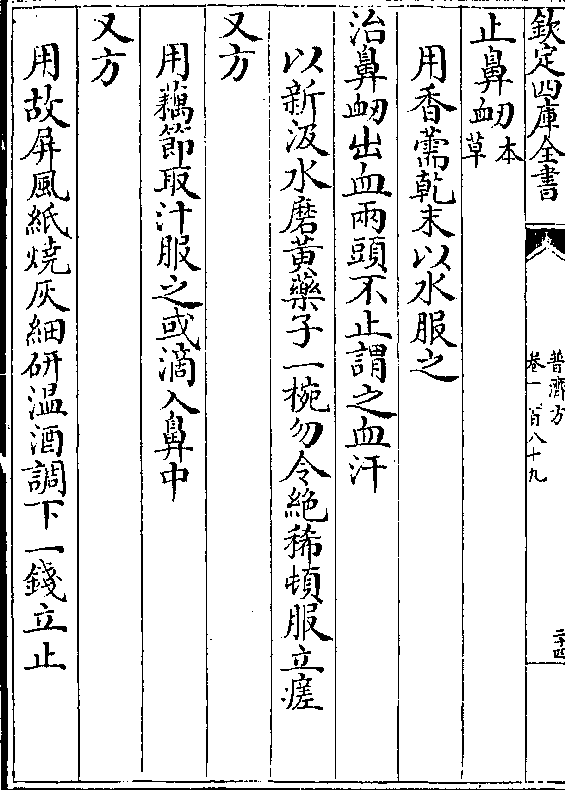 欽定四庫全書
普濟方
卷一百八十九
二十四
止鼻衂本草
用香薷乾末以水服之
治鼻衂出血兩頭不止謂之血汗
以新汲水磨黃藥子一椀勿令絶稀頓服立瘥
又方
用藕節取汁服之或滴入鼻中
又方
用故屏風紙燒灰細研温酒調下一錢立止